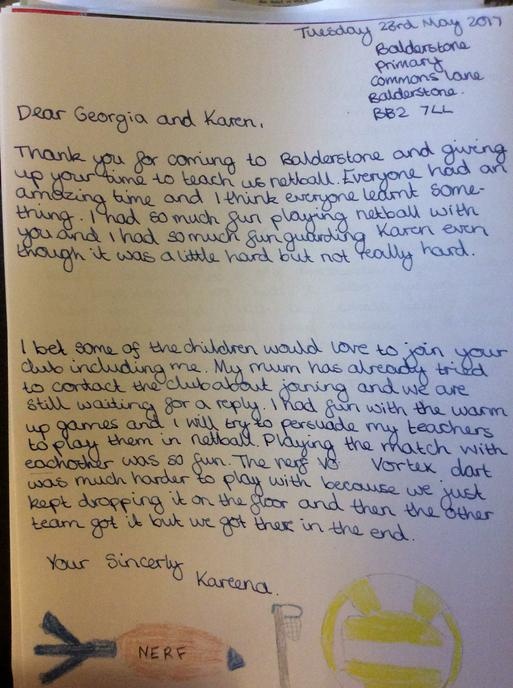 Tuesday 23rd May 2017
Balderstone
Primary
Commons Lane
Balderstone.
BB2 7LL
Dear Georgia and Karen,
Thank you for coming to Balderstone and giving
up your time to teach us netball. Everyone had an
amazing time and I think everyone learnt some-
thing. I had so much fun playing netball with
you and I had so much fun guarding Karen even
though it was a little hard but not really hard.
I bet some of the children would love to join your
club including me. My mum has already tried
to contact the club about joining and we are
still waiting for a reply. I had fun with the warm
up games and I will try to persuade my teachers
to play them in netball. Playing the match with
eachother was so fun. The nerf Vo Vortex dart
was much harder to play with because we just
kept dropping it on the floor and then the other
team got it but we got there in the end.
Your Sincerly
Kareena.
NERF